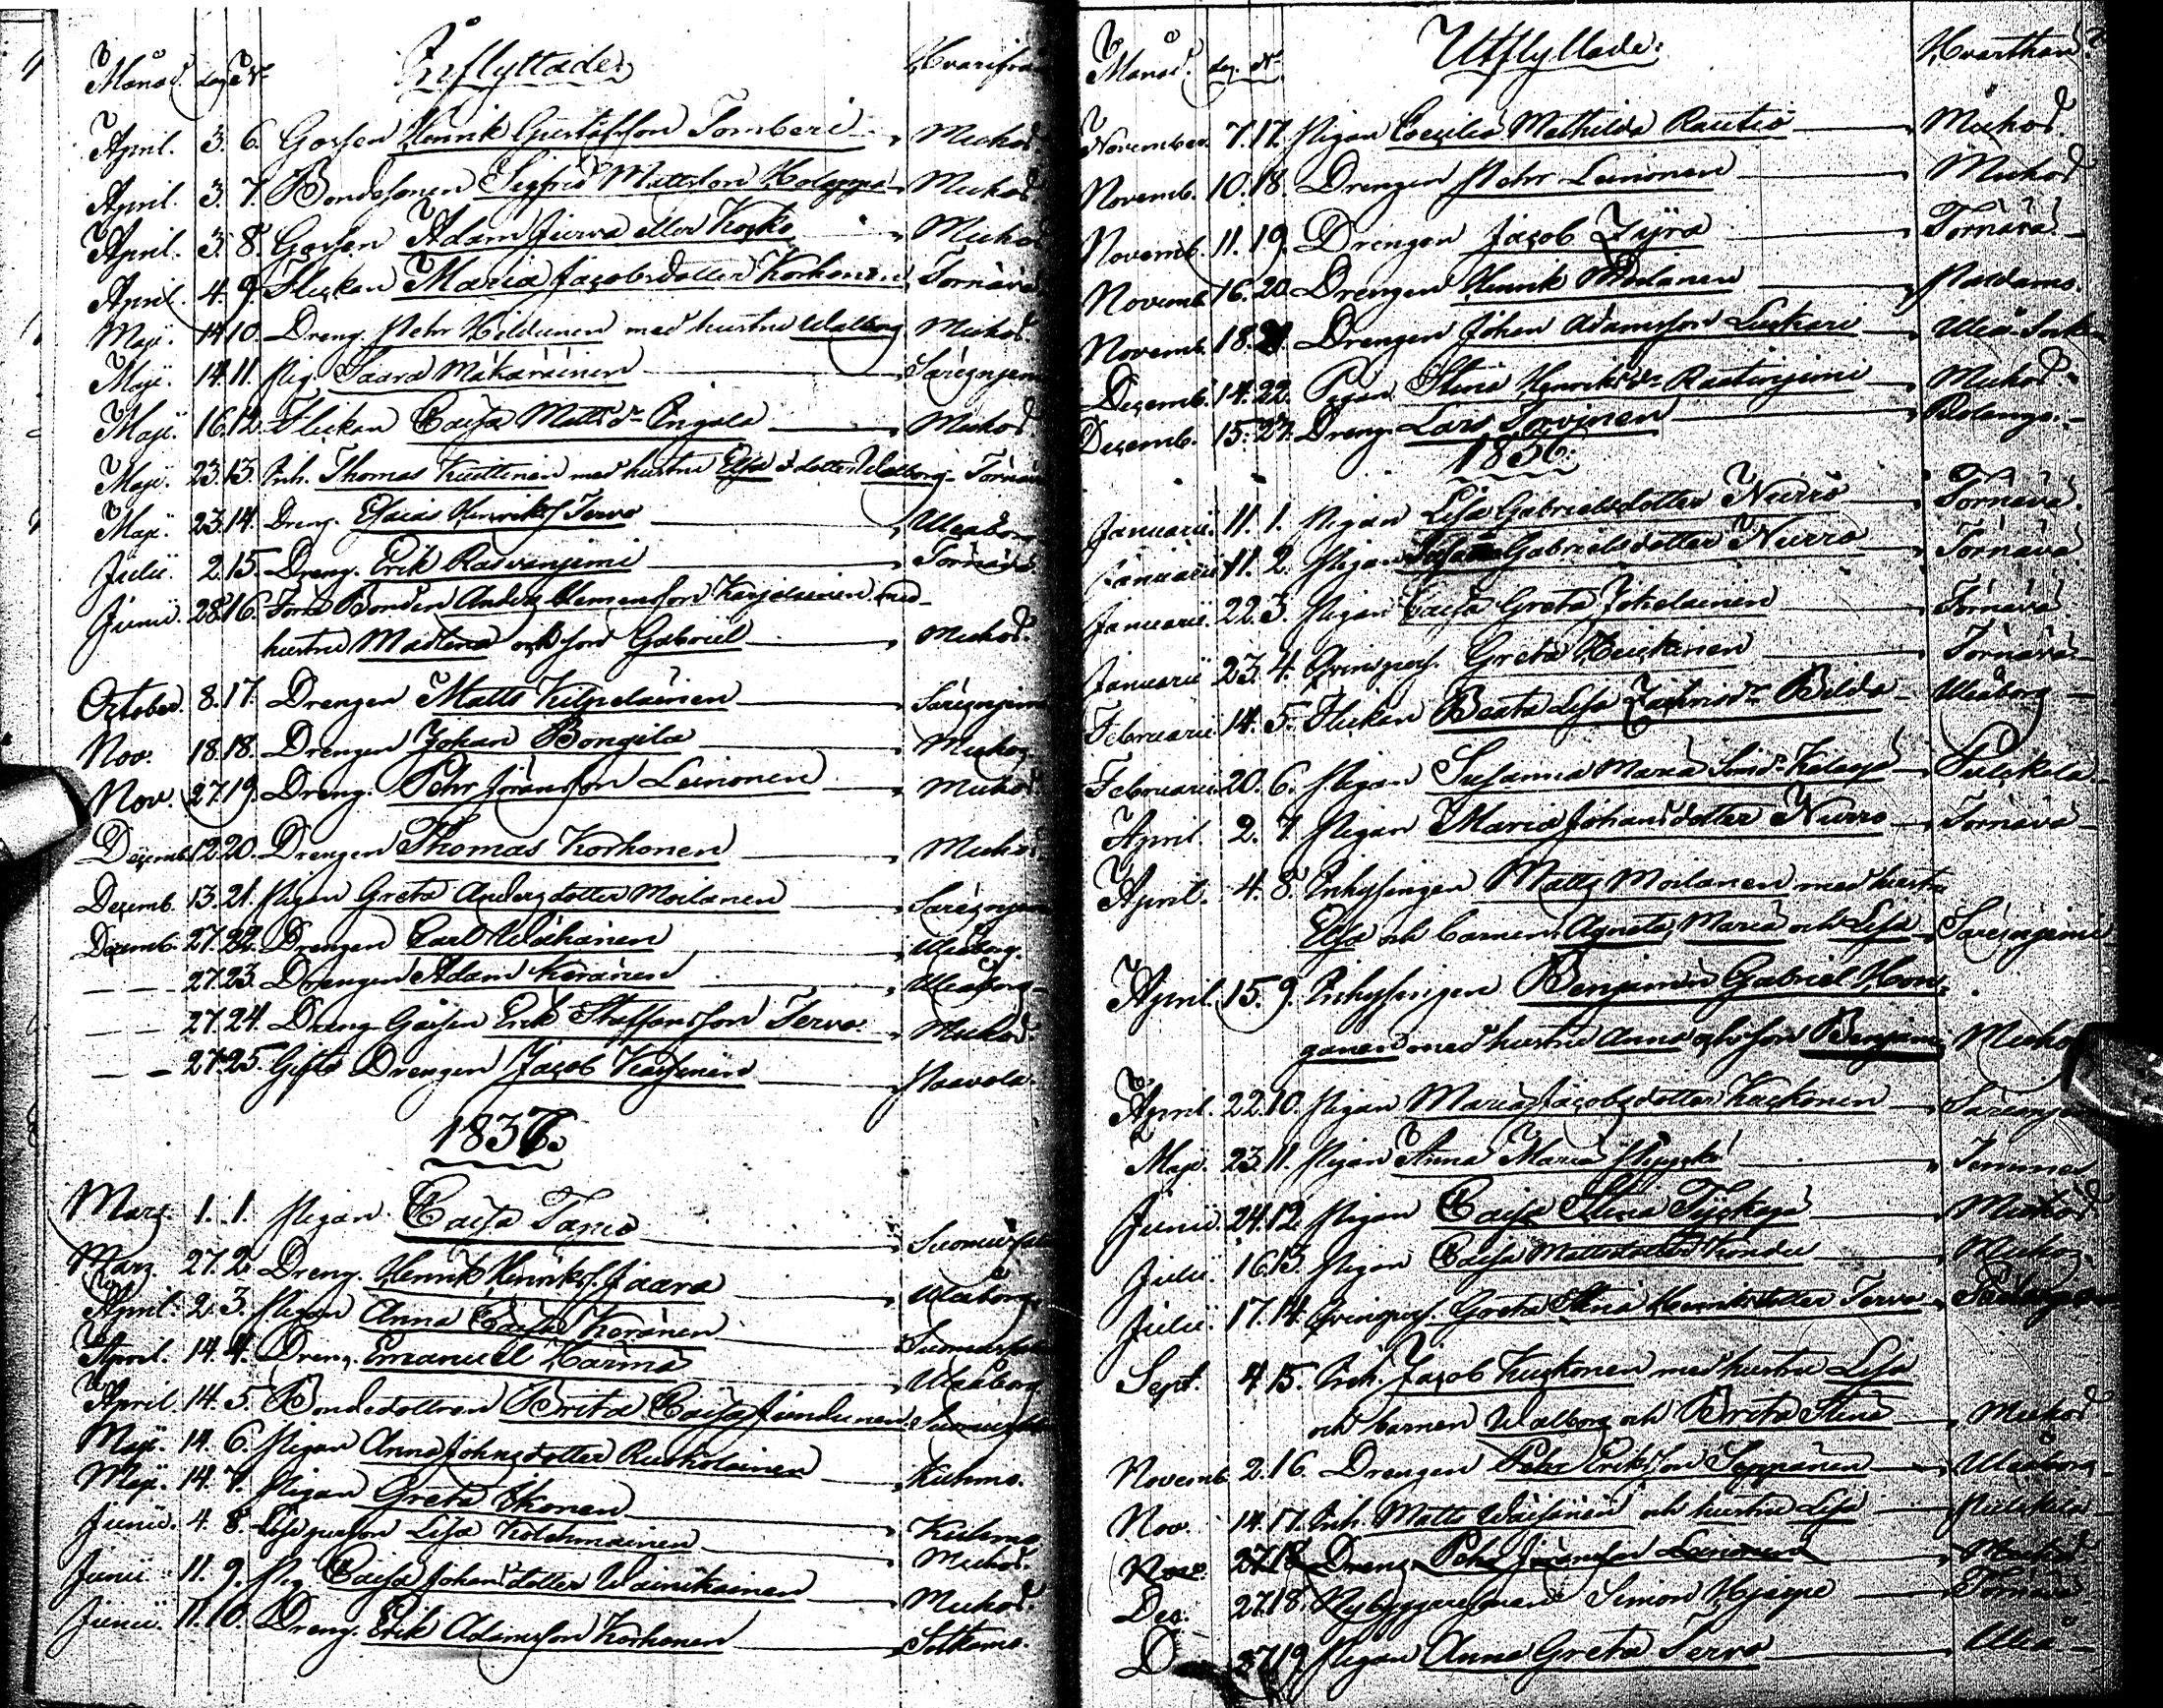 Månad. dag. N:o Inflyttade: Hvarifrån
April. 3. 6. Gossen Henrik Gustafsson Tomberi Muhos.
April. 3. 7. Bondesonen Sigfrid Mattsson Holappa Muhos
April. 3. 8. Gossen Adam Jurva eller Kosko Muhos
April. 4. 9. Flickan Maria Jacobsdotter Korhonen Tornävä.
Maji. 14. 10. Dreng. Pehr Hildunen med hustru Walborg Muhos.
Maji. 14. 11. Pig. Saara Mäkäräinen Säresnjemi
Maji. 16. 12. Flickan Caisa Mattsdr Engala Muhos.
Maji. 23. 13. Inh. Thomas Kuittinen med hustru Elsa o dotter Walborg Tornävä
Maji. 23. 14. Dreng. Esaias Henriks. Tervo Uleåborg
Julii. 2. 15. Dreng. Erik Rasvanjemi Tornävä.
Junii. 28. 16. Förre Bonden Anders Clemensson Karjalainen med
hustru Madlena och son Gabriel Muhos.
October. 8. 17. Drengen Matts Kilpeläinen Säresnjemi
Nov. 18. 18. Drengen Johan Bongila Muhos
Nov. 27. 19. Dreng. Pehr Göransson Leinonen Muhos.
Decemb. 12. 20. Drengen Thomas Korhonen Muhos
Decemb. 13. 21. Pigan Greta Andersdotter Moilanen Säresnjemi
Decemb. 27. 22. Drengen Carl Wähänen Uleåborg.
— — 27. 23. Drengen Adam Keränen Uleåborg
— — 27. 24. Dreng Gossen Erik Staffansson Tervo. Muhos
— — 27. 25. Gifte Drengen Jacob Karsinen Paavola.
1837.
Mars. 1. 1. Pigan Caisa Tamo
Mars. 27. 2. Dreng. Henrik Henriks. Jaara Uleåborg
April. 2. 3. Pigan Anna Caisa Keränen
April. 14. 4. Dreng. Emanuel Harma Uleåborg
April. 14. 5. Bondedottren Brita Caisa Jundunen
Maji. 14. 6. Pigan Anna Johnsdotter Ruokolainen Kuhmo.
Maji. 14. 7. Pigan Greta Ikonen Kuhmo
Junii. 4. 8. Lösa person Lisa Kolehmainen Muhos
Junii. 11. 9. Pig. Caisa Johansdotter Wäinikainen Muhos.
Junii. 11. 10. Dreng. Erik Adamsson Korhonen Sotkamo.
Månad. dag. N:o Utflyttade: Hvarthän
November. 7. 17. Pigan Cecilia Mathilda Rautio Muhos.
Novemb. 10. 18. Drengen Pehr Leinonen Muhos
Novemb. 11. 19. Drengen Jacob Zyra Tornävä
Novemb. 16. 20. Drengen Henrik Moilanen Paldamo.
Novemb. 18. 21. Drengen Johan Adamsson Luckari Uleå Socken
Decemb. 14. 22. Pigan Stina Henriksdr Rautinjemi Muhos.
Decemb. 15. 23. Dreng. Lars Sorvinen Pudasjo.
1836.
Januarii. 11. 1. Pigan Lisa Gabrielsdotter Nurro Tornävä.
Januarii 11. 2. Pigan Gabrielsdotter Nurro Tornävä
Januarii. 22. 3. Pigan Caisa Greta Jokelainen Tornävä
Januarii 23. 4. Qvinspers. Greta Heickinen Tornävä
Februarii 14. 5. Flickan Beata Lisa Zachrisdr Bilda Uleåborg
Februarii 20. 6. Pigan Susanna Maria Simsdr Kälejä Pulckila
April. 2. 7. Pigan Maria Johansdotter Nurro Tornävä
April. 4. 8. Inhysingen Matts Moilanen med hustru
Elsa och barnen Agneta, Maria och Lisa Säresnjemi
April. 15. 9. Inhysingen Benjamin Gabriel Hon-
ganen med hustru Anna och son Benjamin Muhos
April. 22. 10. Pigan Maria Jacobsdotter Kackonen Säresnjemi
Maji. 23. 11. Pigan Anna Maria Temmes
Junii. 24. 12. Pigan Caisa Stina Tyckyä Muhos
Julii. 16. 13. Pigan Caisa Mattsdotter Kondu Muhos.
Julii. 17. 14. Qvinspers. Greta Stina Henriksdotter Tervo
Sept. 4. 15. Inh. Jacob Kuckonen med hustru Lisa
och barnen Walborg och Breta Stina Muhos
Novemb. 2. 16. Drengen Pehr Eriksson Seppänen Uleåborg
Nov. 14. 17. Inh. Matts Wäisänen och hustru Lisa Pulckila
Nov. 27. 18. Dreng. Pehr Göransson Leinonen Muhos
Dec. 27. 18. Nybyggaresonen Simon Hjerpe Tornävä
D 27. 19. Pigan Anna Greta Tervo Uleå